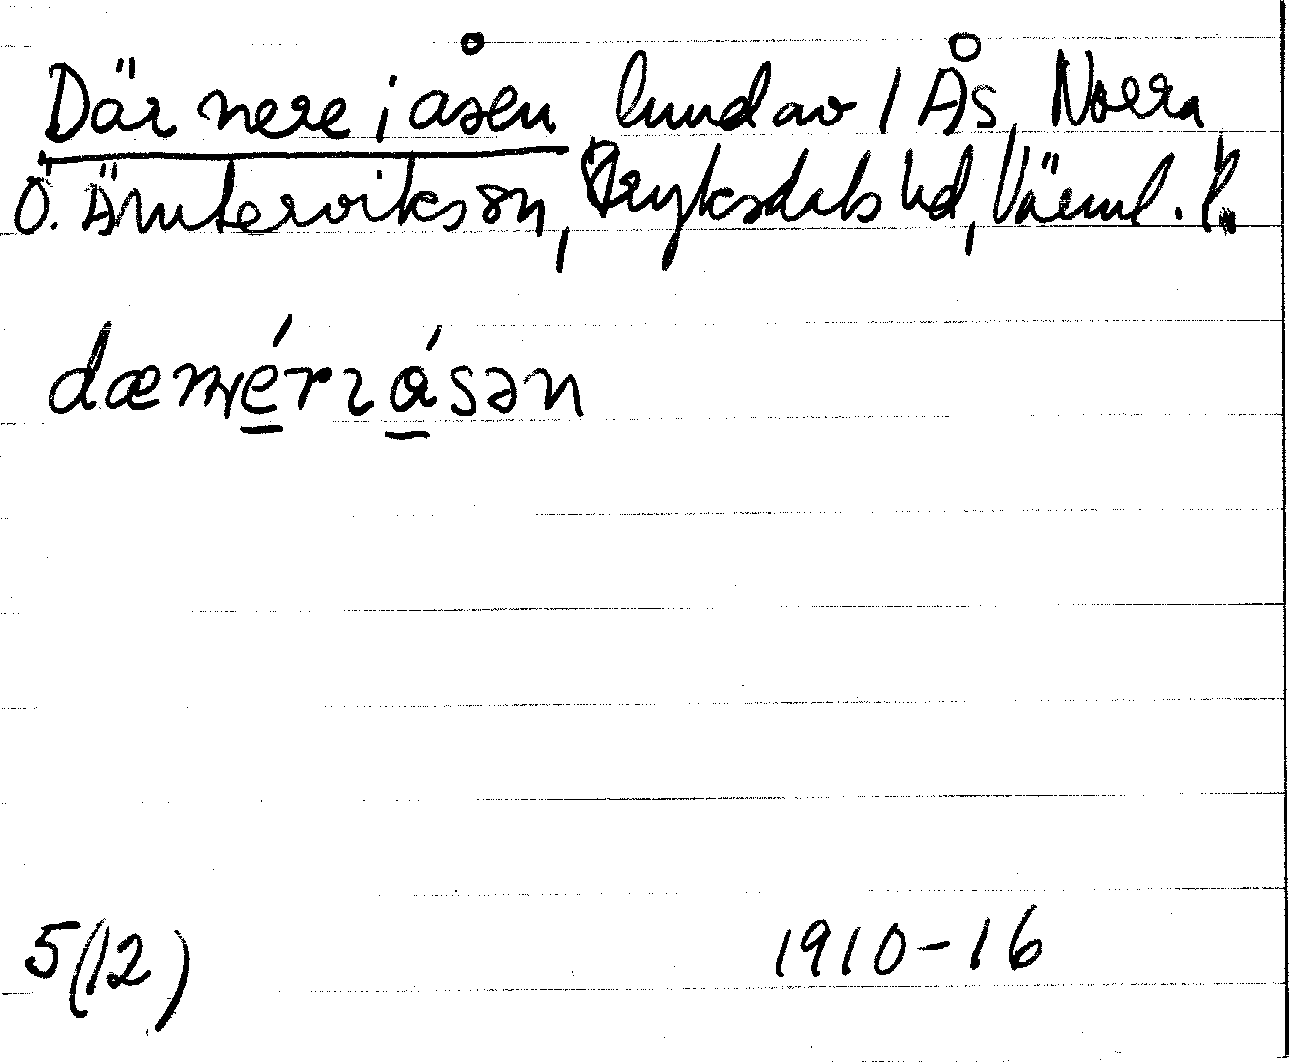 Där nere i åsen, lundav 1 Ås, Norra
Ö. Ämtervikssn, Fryksdals hd, Värml. l.
dænérɩåsən
5(12) 1910-16